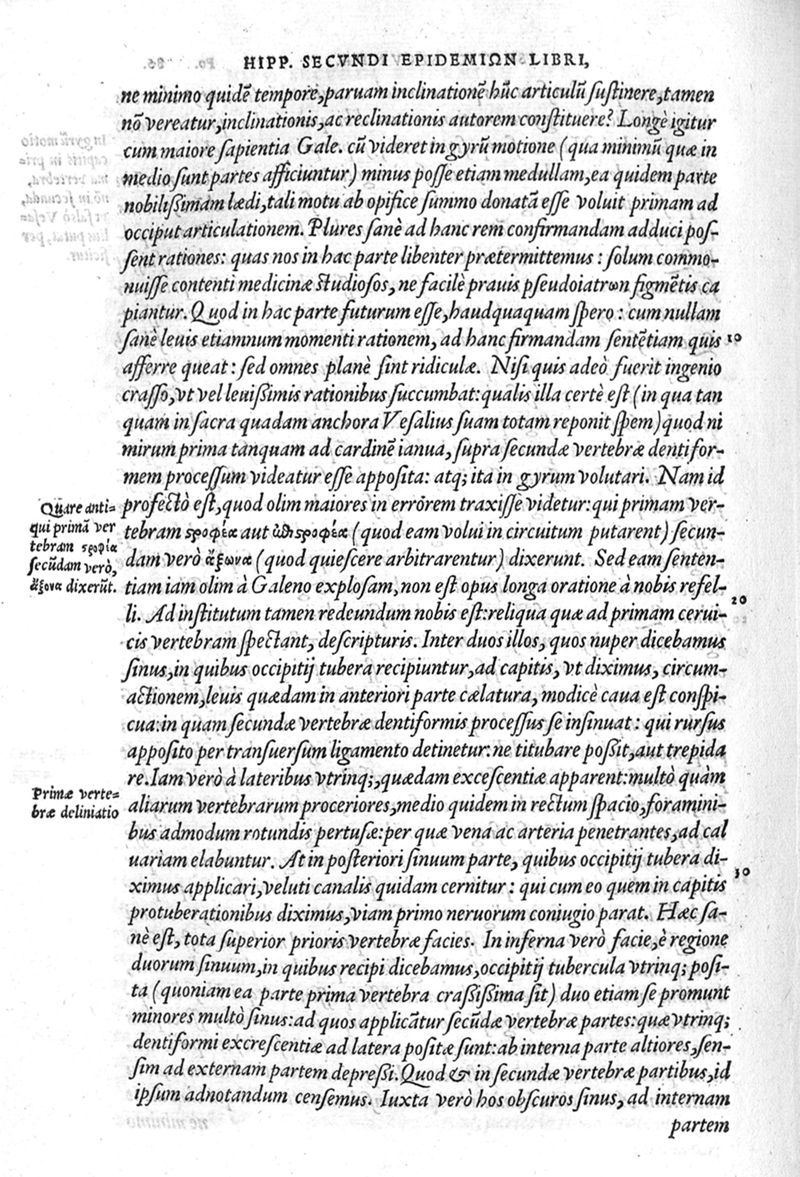 HIPP. SECVNDI EPIDEMIΩN LIBRI,
ne minimo quidẽ tempore, paruam inclinationẽ hũc articulũ sustinere, tamen
nõ vereatur, inclinationis, ac reclinationis autorem constituere? Longè igitur
cum maiore sapientia Gale. cũ videret in gyrũ motione (qua minimũ quæ in
medio sunt partes afficiuntur) minus posse etiam medullam, ea quidem parte
nobilissimam lædi, tali motu ab opifice summo donatã esse voluit primam ad
occiput articulationem. Plures sanè ad hanc rem confirmandam adduci pos-
sent rationes: quas nos in hac parte libenter prætermittemus: solum commo-
nuisse contenti medicinæ studiosos, ne facilè prauis pseudoiatrων figmẽtis ca
piantur. Quod in hac parte futurum esse, haudquaquam spero: cum nullam
sanè leuis etiamnum momenti rationem, ad hanc firmandam sentẽtiam quis 10
afferre queat: sed omnes planè sint ridiculæ. Nisi quis adeò fuerit ingenio
crasso, vt vel leuissimis rationibus succumbat: qualis illa certè est (in qua tan
quam in sacra quadam anchora Vesalius suam totam reponit spem) quod ni
mirum prima tanquam ad cardinẽ ianua, supra secundæ vertebræ dentifor-
mem processum videatur esse apposita: atq; ita in gyrum volutari. Nam id
Quare anti=
qui primã ver
tebram ϛροφία
secũdam verò,
ἄξονα dixerũt.
profectò est, quod olim maiores in errõrem traxisse videtur: qui primam ver-
tebram ϛροφία aut (quod eam volui in circuitum putarent) secun-
dam verò ἄξωνα (quod quiescere arbitrarentur) dixerunt. Sed eam senten-
tiam iam olim à Galeno explosam, non est opus longa oratione à nobis refel-
li. Ad institutum tamen redeundum nobis est: reliqua quæ ad primam cerui- 20
cis vertebram spectant, descripturis. Inter duos illos, quos nuper dicebamus
sinus, in quibus occipitij tubera recipiuntur, ad capitis, vt diximus, circum-
actionem, leuis quædam in anteriori parte cælatura, modicè caua est conspi-
cua: in quam secundæ vertebræ dentiformis processus se insinuat: qui rursus
apposito per transuersum ligamento detinetur: ne titubare possit, aut trepida
re. Iam verò à lateribus vtrinq;, quædam excescentiæ apparent: multò quàm
Primæ verte=
bræ deliniatio
aliarum vertebrarum proceriores, medio quidem in rectum spacio, foramini-
bus admodum rotundis pertusæ: per quæ vena ac arteria penetrantes, ad cal
uariam elabuntur. At in posteriori sinuum parte, quibus occipitij tubera di-
ximus applicari, veluti canalis quidam cernitur: qui cum eo quem in capitis 30
protuberationibus diximus, viam primo neruorum coniugio parat. Hæc sa-
nè est, tota superior prioris vertebræ facies. In inferna verò facie, è regione
duorum sinuum, in quibus recipi dicebamus, occipitij tubercula vtrinq; posi-
ta (quoniam ea parte prima vertebra crassissima sit) duo etiam se promunt
minores multò sinus: ad quos applicãtur secũdæ vertebræ partes: quæ vtrinq;
dentiformi excrescentiæ ad latera positæ sunt: ab interna parte altiores, sen-
sim ad externam partem depressi. Quod & in secundæ vertebræ partibus, id
ipsum adnotandum censemus. Iuxta verò hos obscuros sinus, ad internam
partem